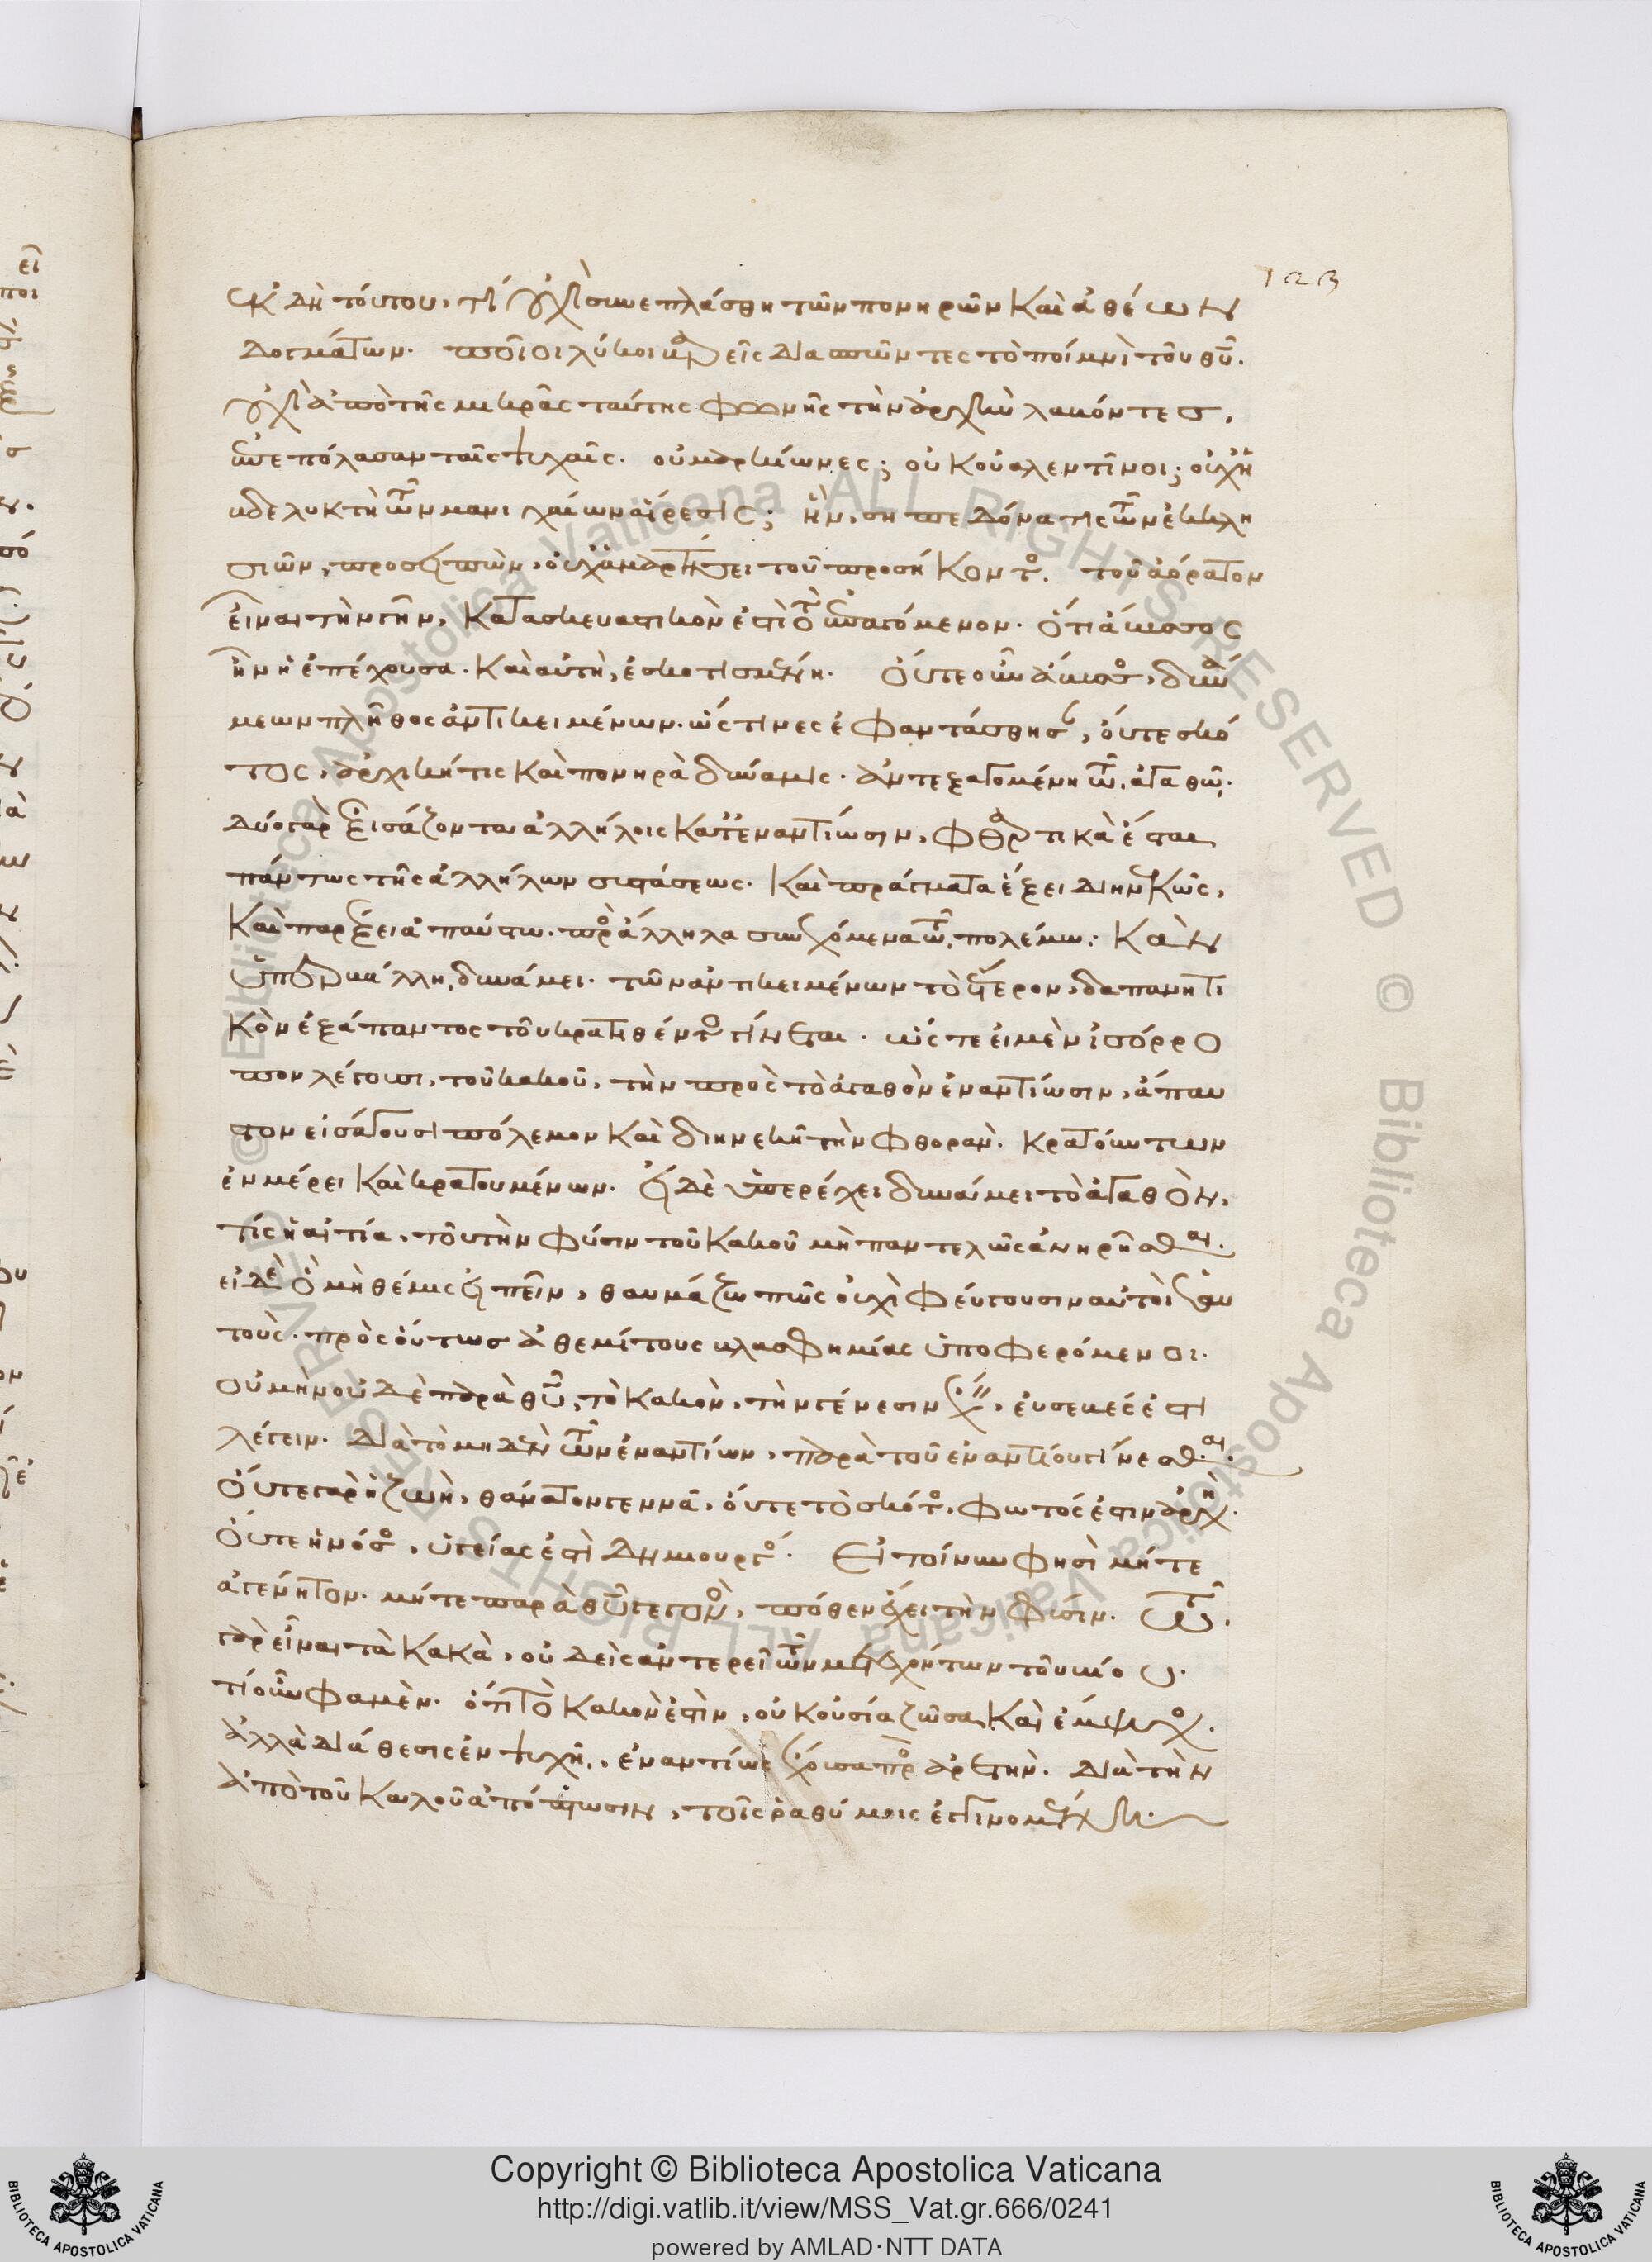 123
ἐκ δὴ τούτου, τί οὐχὶ συνεπλάσθη τῶν πονηρῶν καὶ ἀθέων
δογμάτων. ποῖοι λύκοι βαρεῖς διασπῶντες τὸ ποίμνιον τοῦ θῦ.
οὐχὶ ἀπὸ τῆς μικρᾶς ταύτης φωνῆς τὴν ἀρχὴν λαβόντες,
ἐπεπόλασαν ταῖς ψυχαῖς. οὐ μαρκίωνες; οὐκ οὐαλεντῖνοι; οὐχ ἡ
βδελυκτὴ τῶν μανιχαίων αἵρεσις; ἣν, σηπεδόνα τις τῶν ἐκκλη
σιῶν, προσειπὼν, οὐχ ἁμαρτήσει τοῦ προσήκοντος. τοῦ ἀόρατον
εἶναι τὴν γῆν, κατασκευαστικὸν ἐστὶ τὸ ἐπαγόμενον. ὅτι ἄβυσσος
ἦν ἡ ἐπέχουσα. καὶ αὐτὴ, ἐσκοτισμένη. οὔτε οὖν ἄβυσσος, δυνά
μεων πλῆθος ἀντικειμένων. ὥς τινες ἐφαντάσθησαν, οὔτε σκό
τος, ἀρχική τις καὶ πονηρὰ δύναμις. ἀντεξαγομένη τῶ ἀγαθῶ.
δύο γὰρ ἐξισάζοντα ἀλλήλοις κατ' ἐναντίωσιν, φθαρτικὰ ἔσται
πάντως τῆς ἀλλήλων συστάσεως. καὶ πράγματα ἕξει διηνεκῶς,
καὶ παρέξει ἀπαύστως. πρὸς ἄλληλα συνεχόμενα τῶ πολέμω. κἂν
ὑπερβάλλη δυνάμει. τῶν ἀντικειμένων τὸ ἕτερον, δαπανητι
κὸν ἐξάπαντος τοῦ κρατηθέντος γίνεται. ὥστε εἰ μὲν ἰσόρρο
πον λέγουσι, τοῦ κακοῦ, τὴν πρὸς τὸ ἀγαθὸν ἐναντίωσιν, ἄπαυ
στον εἰσάγουσι πόλεμον καὶ διηνεκῆ τὴν φθορὰν. κρατούντων
ἐν μέρει καὶ κρατουμένων. εἰ δὲ ὑπερέχει δυνάμει τὸ ἀγαθὸν,
τίς ἡ αἰτία, τοῦ τὴν φύσιν τοῦ κακοῦ μὴ παντελῶς ἀνηρῆσθαι.
εἰ δὲ ὃ μὴ θέμις εἰπεῖν, θαυμάζω πῶς οὐχὶ φεύγουσιν αὐτοὶ ἑαυ
τοὺς. πρὸς οὕτως ἀθεμίτους βλασφημίας ὑποφερόμενοι.
οὐ μὴν οὐδὲ παρὰ θῦ, τὸ κακὸν, τὴν γένεσιν ἔχειν, εὐσεβές ἐστι
λέγειν. διὰ τὸ μηδὲν τῶν ἐναντίων, παρὰ τοῦ ἐναντίου γίνεσθαι.
οὔτε γὰρ ἡ ζωὴ, θάνατον γεννᾶ, οὔτε τὸ σκότος, φωτός ἐστιν ἀρχὴ.
οὔτε ἡ νόσος, ὑγείας ἐστὶ δημιουργός. εἰ τοίνυν φησὶ μήτε
ἀγένητον. μήτε παρὰ θῦ γεγονὸς, πόθεν ἔχει τὴν φύσιν. τὸ
γὰρ εἶναι τὰ κακὰ, οὐδεὶς ἀντερεῖ τῶν μετεχόντων τοῦ βίου.
τί οὖν φαμὲν. ὅτι τὸ κακὸν ἐστὶν, οὐκ οὐσία ζῶσα καὶ ἔμψυχος.
ἀλλὰ διάθεσις ἐν ψυχῆ, ἐναντίως ἔχουσα πρὸς ἀρετὴν. διὰ τὴν
ἀπὸ τοῦ καλοῦ ἀπόπτωσιν, τοῖς ραθύμοις ἐγγινομένη.
Copyright © Biblioteca Apostolica Vaticana
http://digi.vatlib.it/view/MSS_Vat.gr.666/0241
powered by AMLAD·NTT DATA